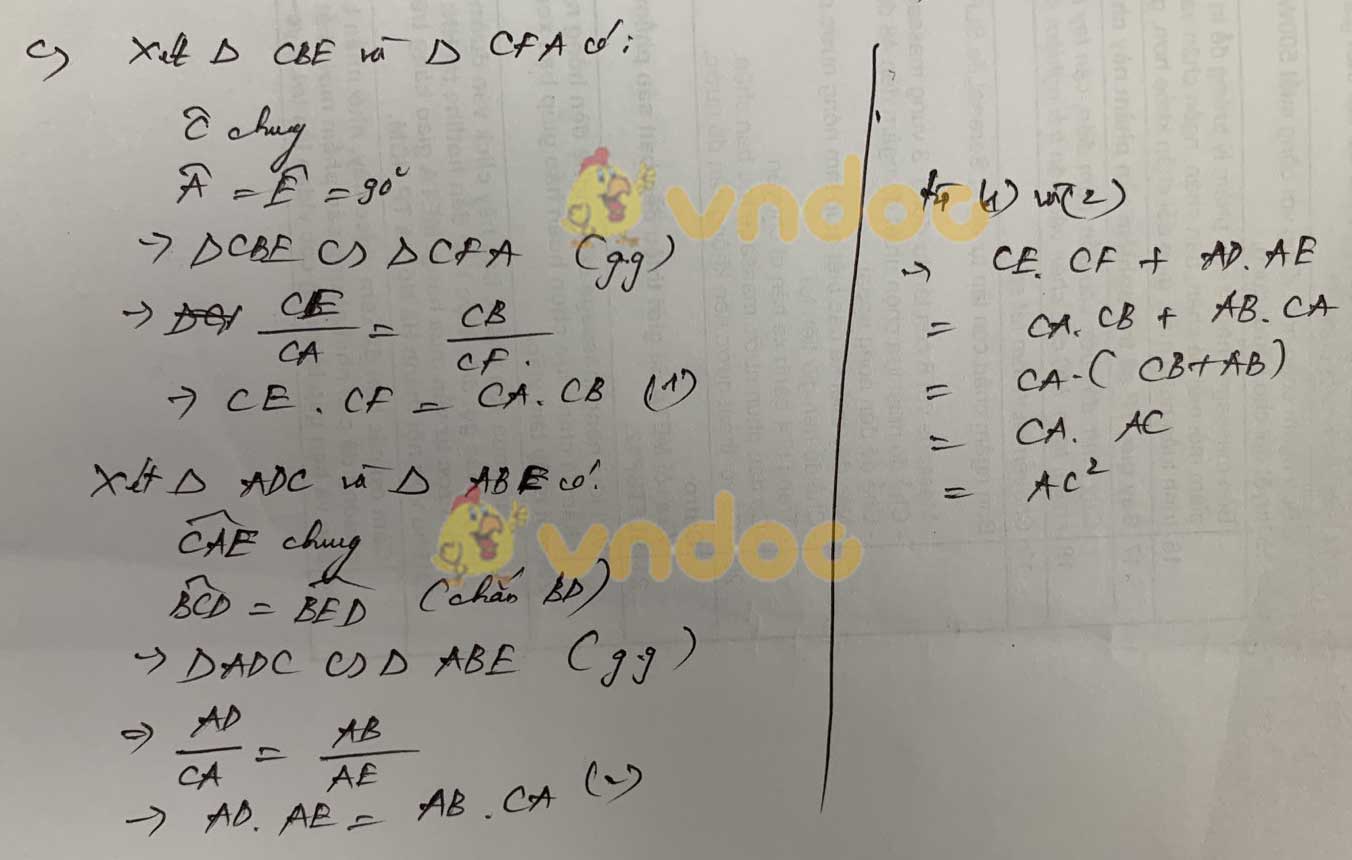 c) Xét Δ CBE và Δ CFA có:
Ĉ chung
Â = Ê = 90°
→ Δ CBE ∽ Δ CFA (g.g)
→ CE/CA = CB/CF.
→ CE . CF = CA . CB (1)
Xét Δ ADC và Δ ABE có:
CAE chung
BCD = BED (chắn BD)
→ Δ ADC ∽ Δ ABE (g.g)
⇒ AD/CA = AB/AE
→ AD. AE = AB . CA (2)
từ (1) và (2)
→ CE. CF + AD. AE
= CA. CB + AB. CA
= CA. ( CB + AB)
= CA. AC
= AC²
vndoc
vndoc